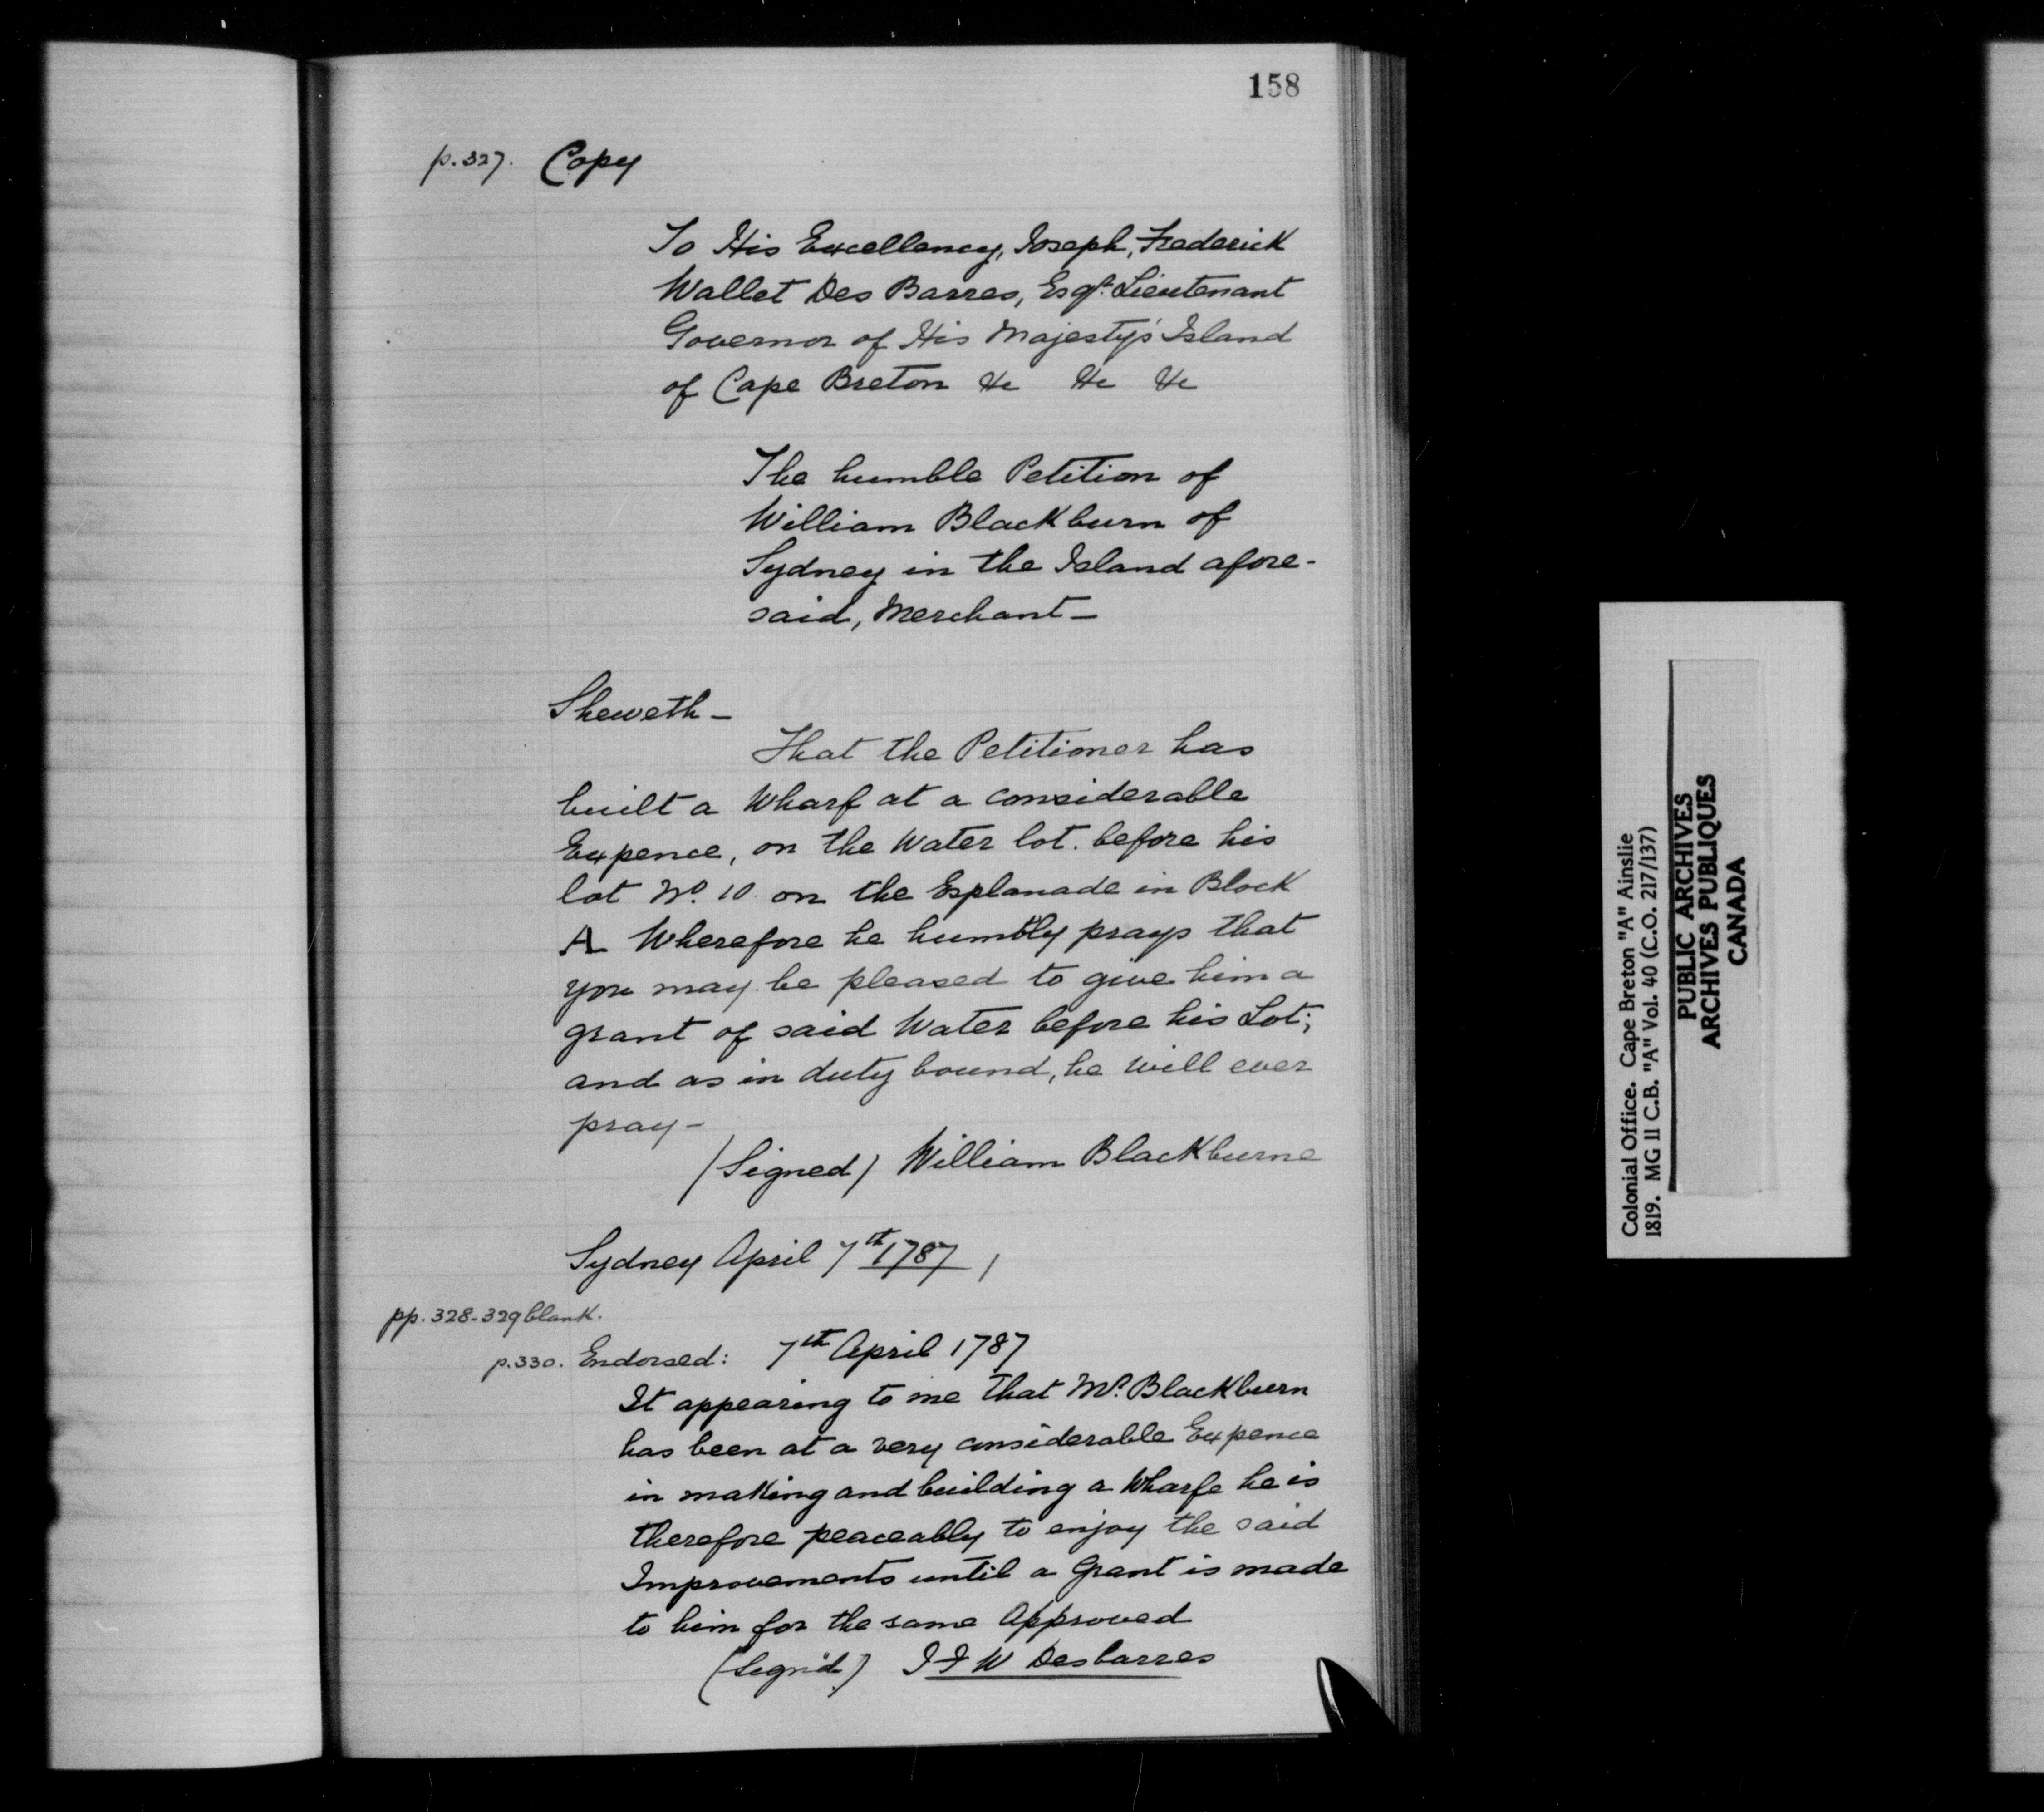 158
p. 327. Copy
To His Excellency, Joseph, Frederick
Wallet Des Barres, Esqr. Lieutenant
Governor of His Majesty's Island
of Cape Breton &c &c &c
The humble Petition of
William Blackburn of
Sydney in the Island afore-
said, Merchant—
Sheweth—
That the Petitioner has
built a Wharf at a considerable
Expence, on the Water lot. before his
lot No. 10 on the Esplanade in Block
A Wherefore he humbly prays that
you may be pleased to give him a
grant of said Water before his Lot;
and as in duty bound, he will ever
pray—
(Signed) William Blackburne
Sydney April 7th 1787
pp. 328-329 blank.
p. 330. Endorsed: 7th April 1787
It appearing to me that Mr. Blackburn
has been at a very considerable Expence
in making and building a Wharfe he is
therefore peaceably to enjoy the said
Improvements until a Grant is made
to him for the same Approved
(Sign'd) J F W Desbarres
Colonial Office. Cape Breton "A" Ainslie
1819. MG 11 C.B. "A" Vol. 40 (C.O. 217/137)
PUBLIC ARCHIVES
ARCHIVES PUBLIQUES
CANADA